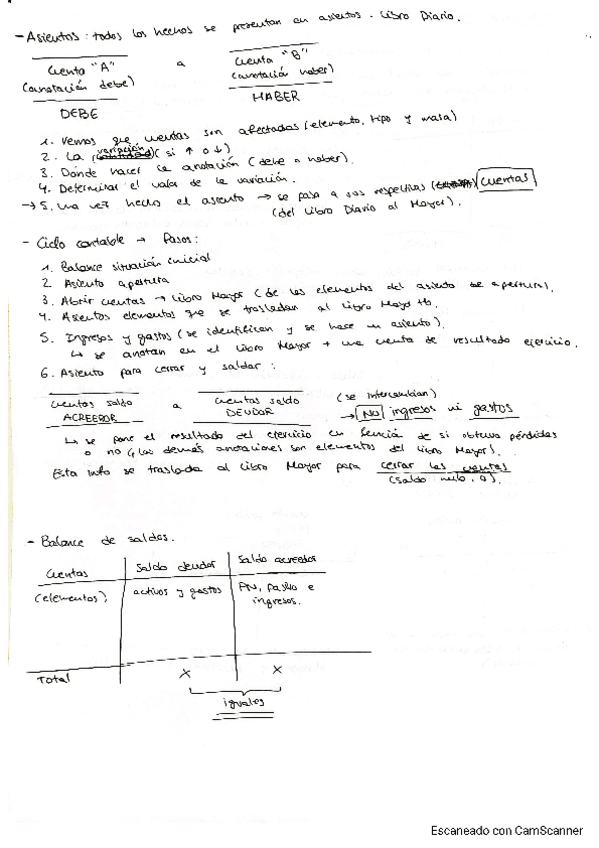 - Asientos: todos los hechos se presentan en asientos. Libro Diario.
Cuenta "A" a Cuenta "B"
(anotación debe) (anotación haber)
DEBE HABER
1. Vemos que cuentas son afectadas (elemento, tipo y masa)
2. La variación (si ↑ o ↓)
3. Dónde hacer la anotación (debe o haber).
4. Determinar el valor de la variación.
→ 5. Una vez hecho el asiento → se pasa a sus respectivas cuentas
(del Libro Diario al Mayor).
- Ciclo contable → Pasos:
1. Balance situación inicial
2. Asiento apertura
3. Abrir cuentas → Libro Mayor (de los elementos del asiento de apertura).
4. Asientos elementos que se trasladan al Libro Mayor tb.
5. Ingresos y gastos (se identifican y se hace un asiento).
↳ se anotan en el Libro Mayor + una cuenta de resultado ejercicio.
6. Asiento para cerrar y saldar:
cuentas saldo a cuentas saldo (se intercambian)
ACREEDOR DEUDOR → NO ingresos ni gastos
↳ se pone el resultado del ejercicio en función de si obtuvo pérdidas
o no (las demás anotaciones son elementos del Libro Mayor).
Esta info se traslada al Libro Mayor para cerrar las cuentas
(saldo nulo, 0).
- Balance de saldos.
Cuentas Saldo deudor Saldo acreedor
(elementos) activos y gastos PN, pasivo e
ingresos.
Total x x
iguales
Escaneado con CamScanner